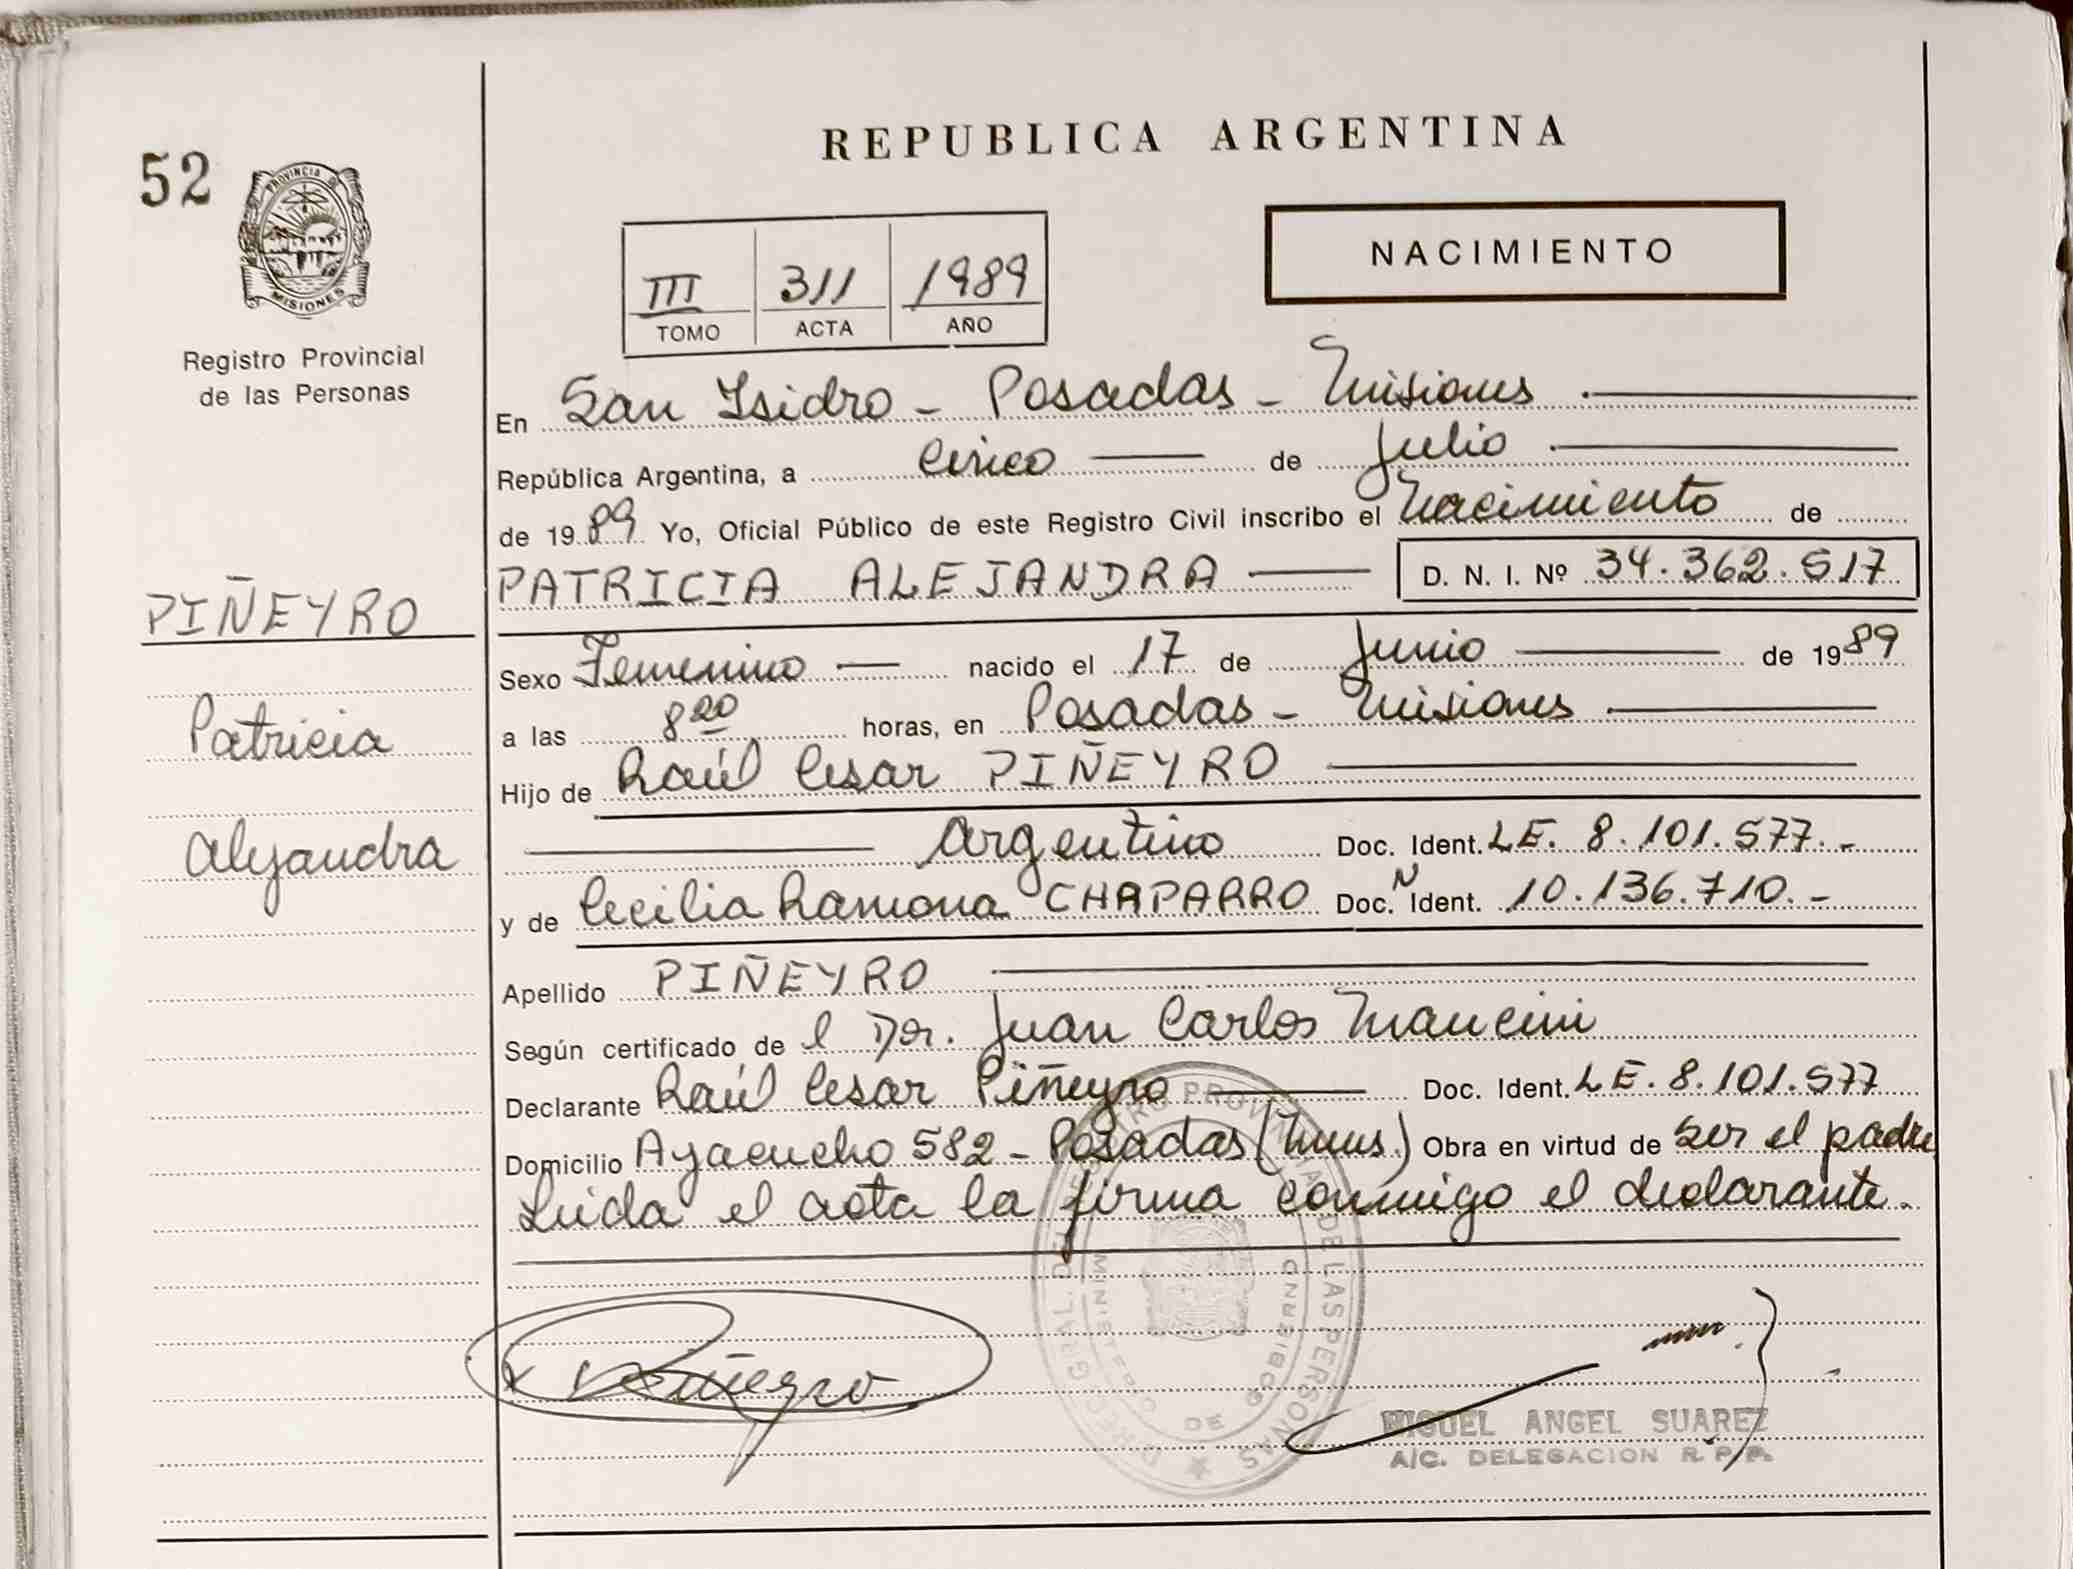 REPUBLICA ARGENTINA
52
PROVINCIA DE
MISIONES
Registro Provincial
de las Personas
NACIMIENTO
III 311 1989
TOMO ACTA AÑO
En San Isidro - Posadas - Misiones
República Argentina, a cinco de Julio
de 1989 Yo, Oficial Público de este Registro Civil inscribo el Nacimiento de
PATRICIA ALEJANDRA D. N. I. Nº 34.362.517
PIÑEYRO
Patricia
Alejandra
Sexo Femenino nacido el 17 de Junio de 1989
a las 8 20 horas, en Posadas - Misiones
Hijo de Raúl Cesar PIÑEYRO
Argentino Doc. Ident. LE. 8.101.577.-
y de Cecilia Ramona CHAPARRO Doc. N Ident. 10.136.710.-
Apellido PIÑEYRO
Según certificado de l Dr. Juan Carlos Mancini
Declarante Raúl Cesar Piñeyro Doc. Ident. LE. 8.101.577
Domicilio Ayacucho 582 - Posadas (Mnes.) Obra en virtud de ser el padre
Leida el acta la firma conmigo el declarante.
DIREC. GRAL. DEL REGISTRO PROVINCIAL DE LAS PERSONAS
MINISTERIO DE GOBIERNO
Piñeyro
MIGUEL ANGEL SUAREZ
A/C. DELEGACION R. P. P.